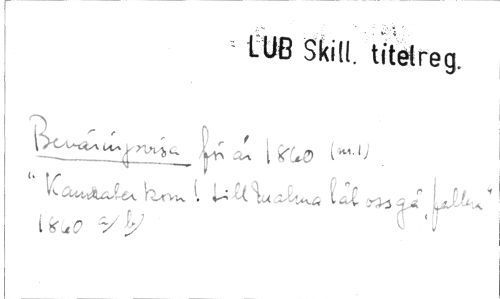 LUB Skill. titelreg.
Beväringsvisa för år 1860 (nr.1)
"Kamrater kom! till Malma låt oss gå, fallera"
1860 a/b/